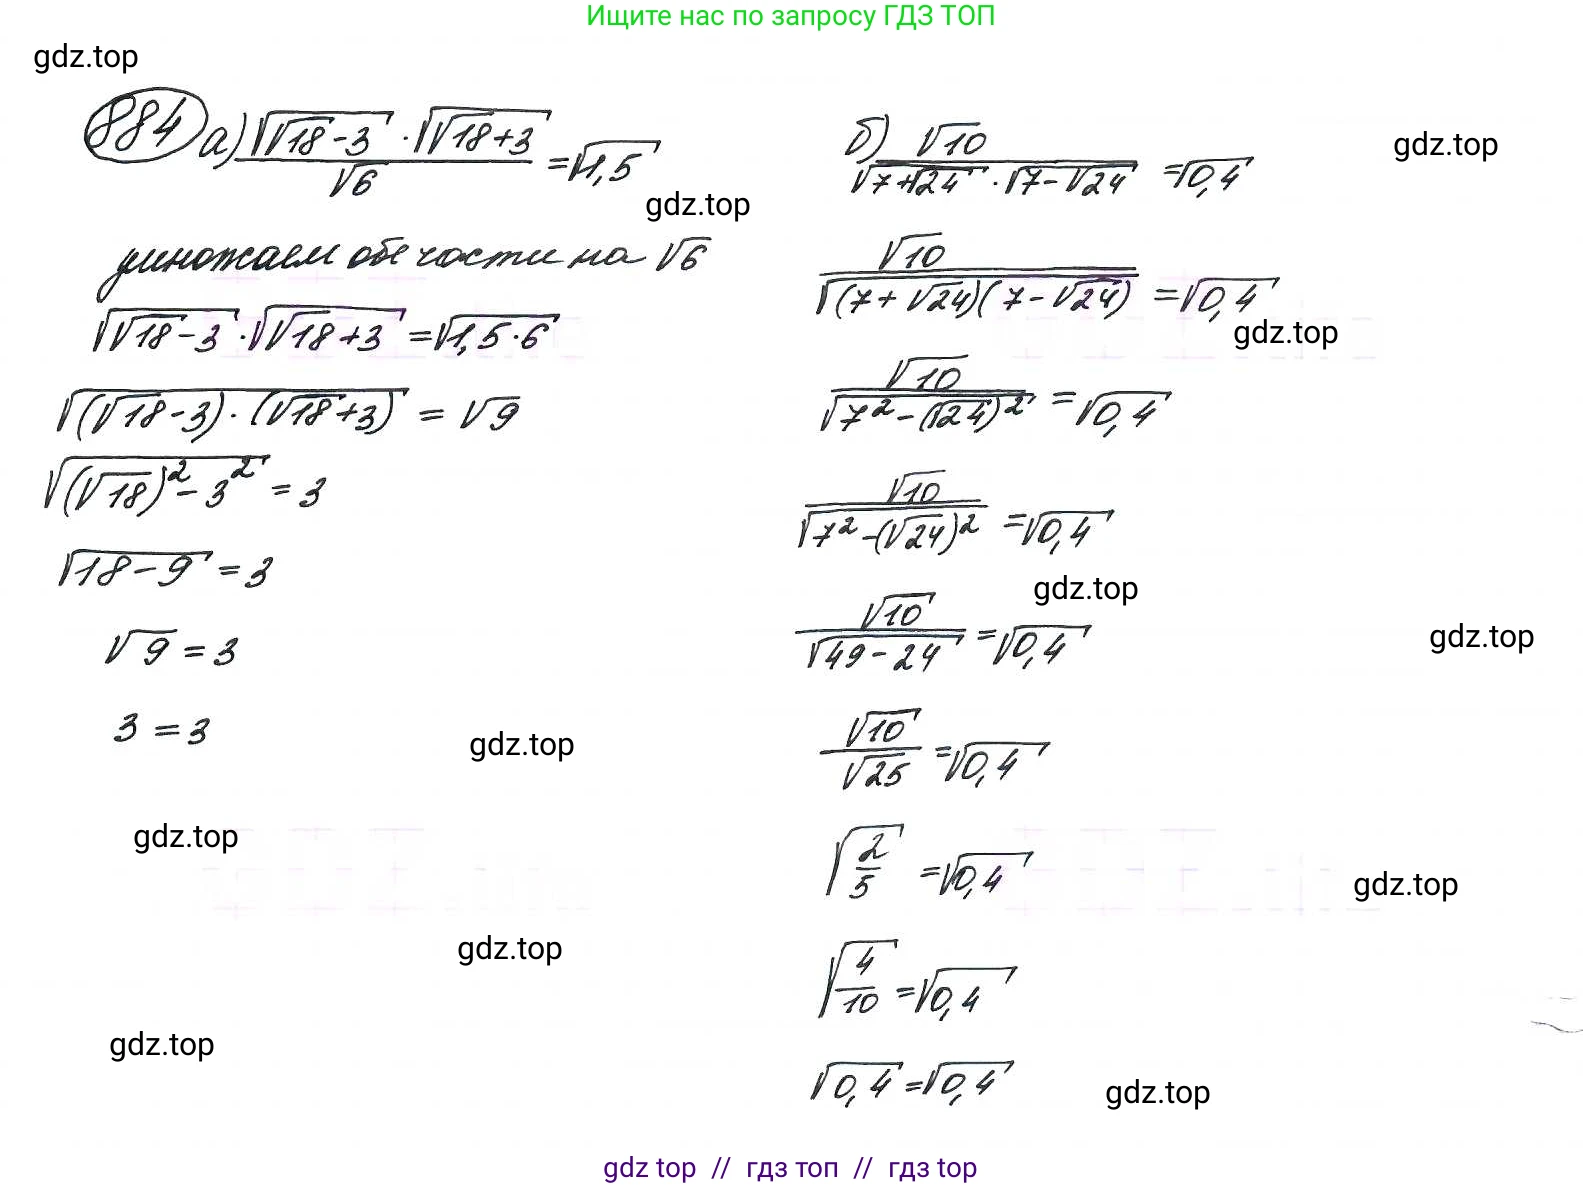 Ищите нас по запросу ГДЗ ТОП
gdz.top
884 а) √(√18-3) · √(√18+3) / √6 = √1,5
gdz.top
умножаем обе части на √6
√(√18-3) · √(√18+3) = √1,5·6
√((√18-3)·(√18+3)) = √9
√((√18)²-3²) = 3
√(18-9) = 3
√9 = 3
3 = 3
gdz.top
gdz.top
gdz.top
gdz.top
б) √10 / (√(7+√24) · √(7-√24)) = √0,4
gdz.top
√10 / √((7+√24)(7-√24)) = √0,4
gdz.top
√10 / √(7²-(√24)²) = √0,4
√10 / √(7²-(√24)²) = √0,4
gdz.top
√10 / √(49-24) = √0,4
gdz.top
√10 / √25 = √0,4
√(2/5) = √0,4
gdz.top
√(4/10) = √0,4
√0,4 = √0,4
gdz.top
gdz top // гдз топ // гдз top